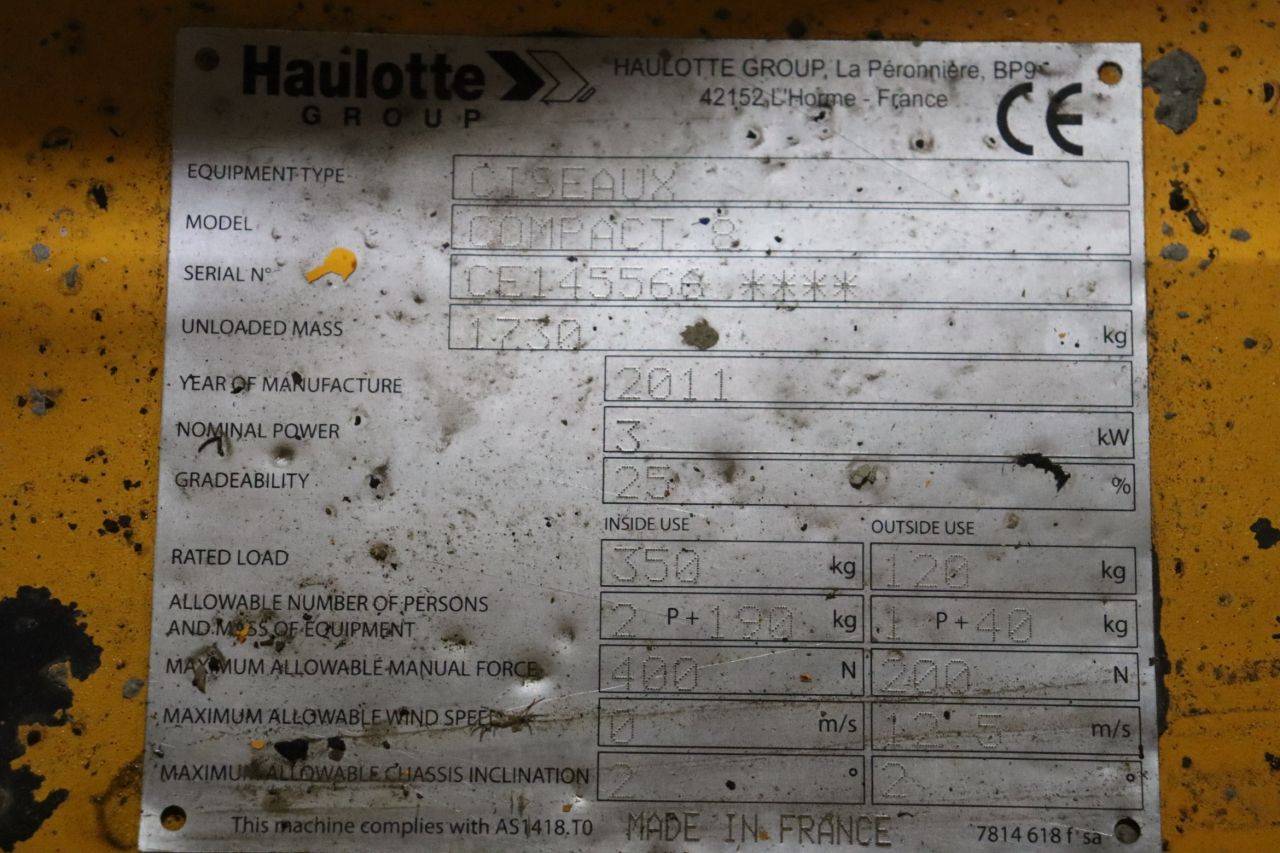 Haulotte
GROUP
HAULOTTE GROUP, La Péronnière, BP9
42152 L'Horme - France
CE
EQUIPMENT TYPE CISEAUX
MODEL COMPACT 8
SERIAL N° CE145560 ****
UNLOADED MASS 1730 kg
YEAR OF MANUFACTURE 2011
NOMINAL POWER 3 kW
GRADEABILITY 25 %
INSIDE USE OUTSIDE USE
RATED LOAD 350 kg 120 kg
ALLOWABLE NUMBER OF PERSONS
AND MASS OF EQUIPMENT 2 P + 190 kg 1 P + 40 kg
MAXIMUM ALLOWABLE MANUAL FORCE 400 N 200 N
MAXIMUM ALLOWABLE WIND SPEED 0 m/s 12.5 m/s
MAXIMUM ALLOWABLE CHASSIS INCLINATION 2 ° 2 °
This machine complies with AS1418.T0 MADE IN FRANCE 7814 618 f sa